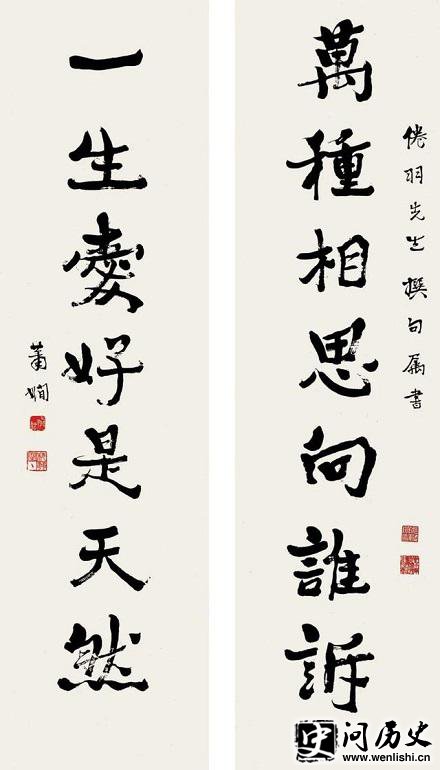 倦羽先生撰句属書
萬種相思向誰訴
一生愛好是天然
蕭嫻
史问历史
www.wenlishi.cn